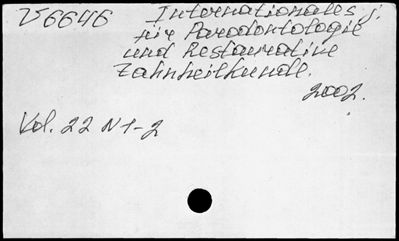 V6646 Internationales J.
für Parodontologie
und Restaurative
Zahnheilkunde.
2002.
Vol. 22 N 1-2